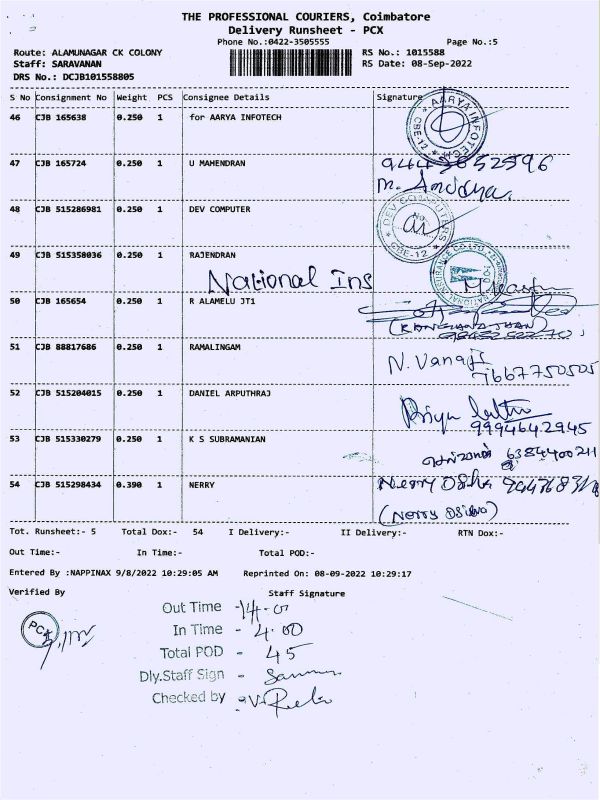 THE PROFESSIONAL COURIERS, Coimbatore
Delivery Runsheet - PCX
Phone No.:0422-3505555 Page No.:5
Route: ALAMUNAGAR CK COLONY RS No.: 1015588
Staff: SARAVANAN RS Date: 08-Sep-2022
DRS No.: DCJB101558805
S No Consignment No Weight PCS Consignee Details Signature
46 CJB 165638 0.250 1 for AARYA INFOTECH
AARYA INFOTECH CBE-12
47 CJB 165724 0.250 1 U MAHENDRAN
48 CJB 515286981 0.250 1 DEV COMPUTER
DEV COMPUTERS CBE-12
49 CJB 515358036 0.250 1 RAJENDRAN
National Ins
50 CJB 165654 0.250 1 R ALAMELU JT1
51 CJB 88817686 0.250 1 RAMALINGAM
N. Vanaji
9667750505
52 CJB 515204015 0.250 1 DANIEL ARPUTHRAJ
Priya
9994642945
53 CJB 515330279 0.250 1 K S SUBRAMANIAN
6384400211
54 CJB 515298434 0.390 1 NERRY
Nerry
(Nerry
Tot. Runsheet:- 5 Total Dox:- 54 I Delivery:- II Delivery:- RTN Dox:-
Out Time:- In Time:- Total POD:-
Entered By :NAPPINAX 9/8/2022 10:29:05 AM Reprinted On: 08-09-2022 10:29:17
Verified By Staff Signature
Out Time -
In Time - 4.00
Total POD - 45
Dly.Staff Sign -
Checked by -